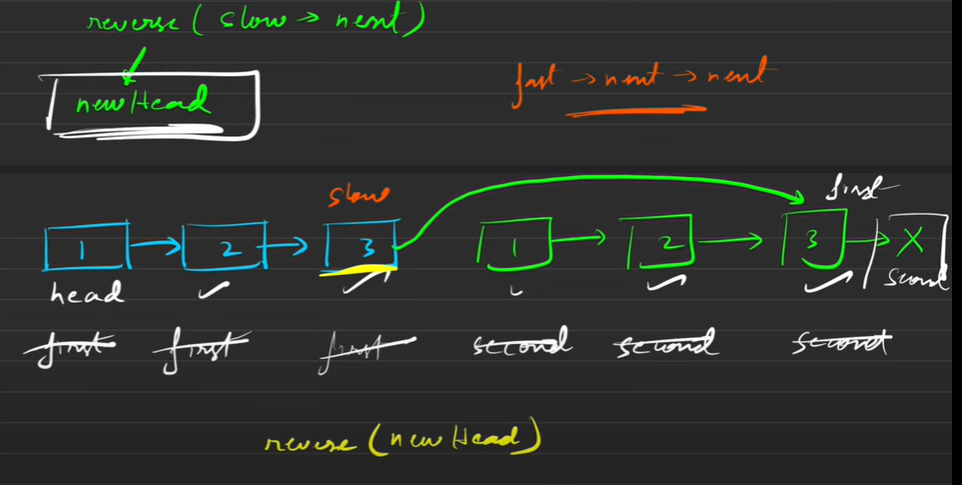 reverse (slow → next)
newHead
fast → next → next
slow
first
1 → 2 → 3
1 → 2 → 3 → X
head
second
first first first second second second
reverse (newHead)